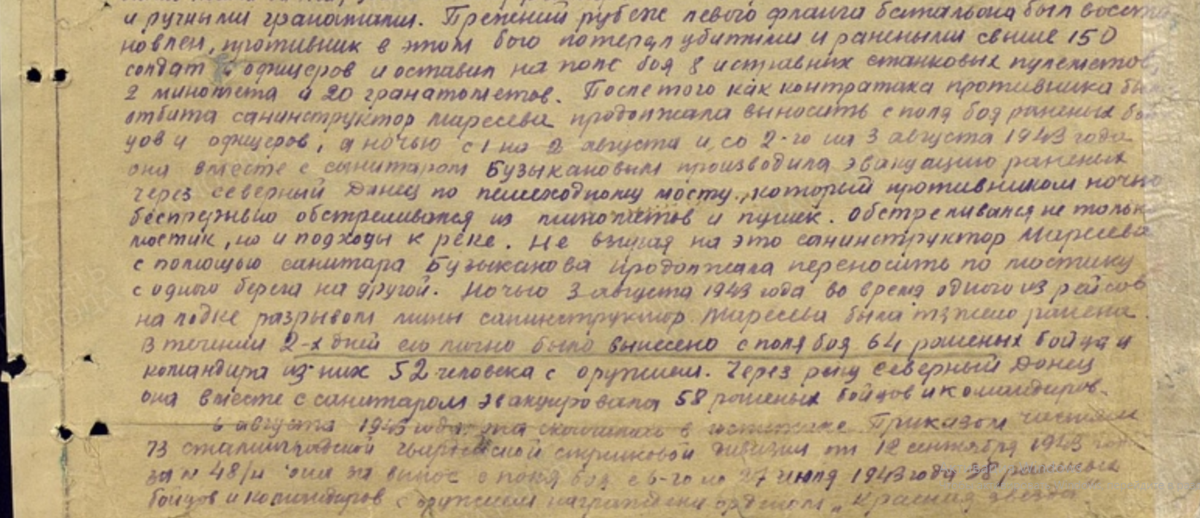 и ручными гранатами. Прежний рубеж левого фланга батальона был восста
новлен, противник в этом бою потерял убитыми и ранеными свыше 150
солдат и офицеров и оставил на поле боя 8 исправных станковых пулеметов,
2 миномета и 20 гранатометов. После того как контратака противника был
отбита санинструктор Маресева продолжала выносить с поля боя раненых бой
цов и офицеров, а ночью с 1 на 2 августа и со 2-го на 3 августа 1943 года
она вместе с санитаром Бузыкановым производила эвакуацию раненых
через северный Донец по пешеходному мосту, который противником ночью
беспрерывно обстреливался из минометов и пушек. Обстреливался не только
мостик, но и подходы к реке. Не взирая на это санинструктор Маресева
с помощью санитара Бузыканова продолжала переносить по мостику
с одного берега на другой. Ночью 3 августа 1943 года во время одного из рейсов
на лодке разрывом мины санинструктор Маресева была тяжело ранена.
В течении 2-х дней ею лично было вынесено с поля боя 64 раненых бойца и
командира из них 52 человека с оружием. Через реку северный Донец
она вместе с санитаром эвакуировала 58 раненых бойцов и командиров.
6 августа 1943 года она скончалась в госпитале. Приказом частям
73 сталинградской гвардейской стрелковой дивизии от 12 сентября 1943 года
за № 48/н она за вынос с поля боя с 6-го по 27 июля 1943 года 38 раненых
бойцов и командиров с оружием награждена орденом „Красная звезда".